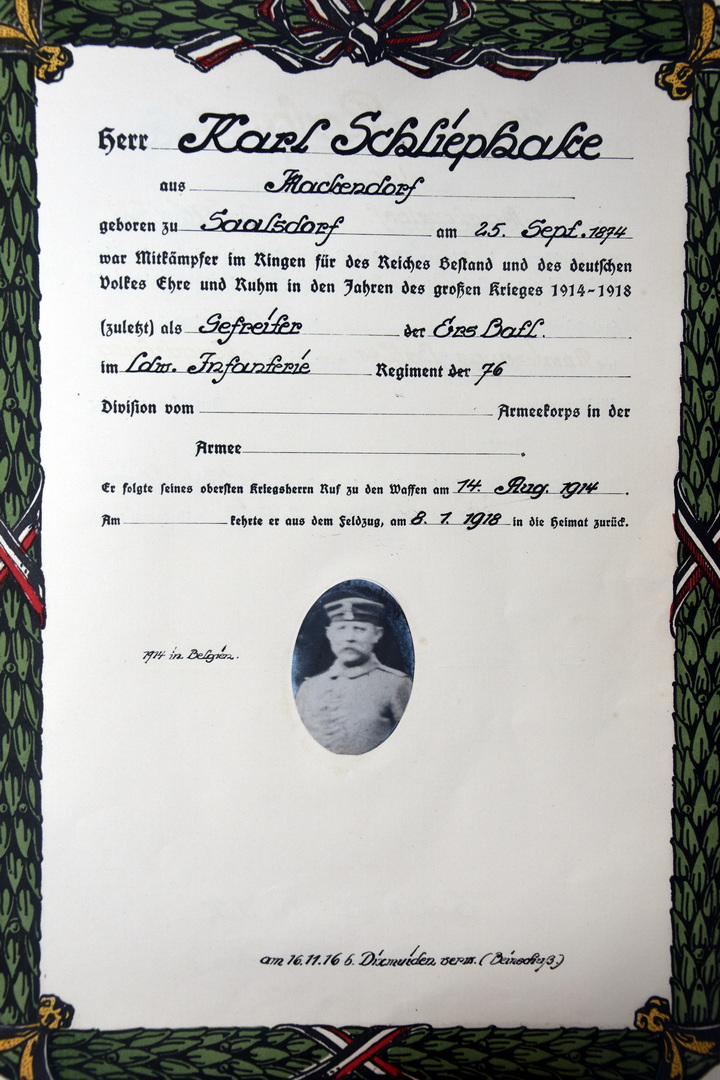 Herr Karl Schliephake
aus Mackendorf
geboren zu Saalsdorf am 25. Sept. 1874
war Mitkämpfer im Ringen für des Reiches Bestand und des deutschen
Volkes Ehre und Ruhm in den Jahren des großen Krieges 1914-1918
(zuletzt) als Gefreiter der Ers Batl.
im Ldw. Infanterie Regiment der 76
Division vom Armeekorps in der
Armee.
Er folgte seines obersten Kriegsherrn Ruf zu den Waffen am 14. Aug. 1914.
Am kehrte er aus dem Feldzug, am 8. 1. 1918 in die Heimat zurück.
1914 in Belgien.
am 16.11.16 b. Dixmuiden verw. (Beinschuß)